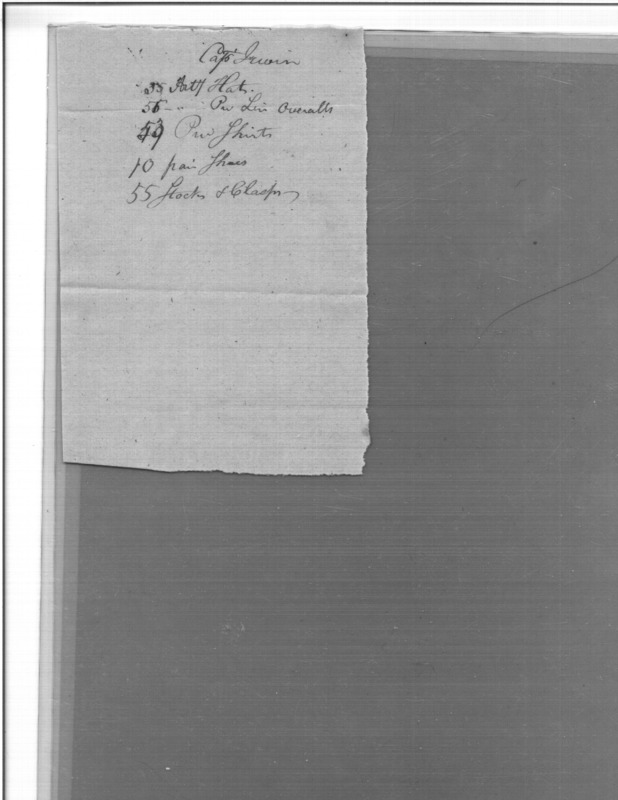 Capt Irwin
55 Hats
56 " Pr Lin Overalls
Pr Shirts
10 pair Shoes
55 Stocks & Clasps